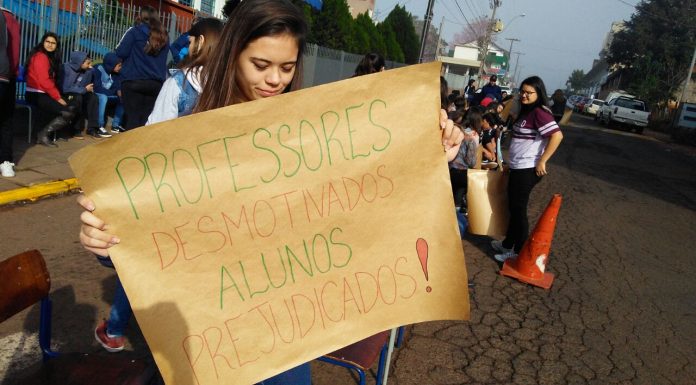 PROFESSORES
DESMOTIVADOS
ALUNOS
PREJUDICADOS!